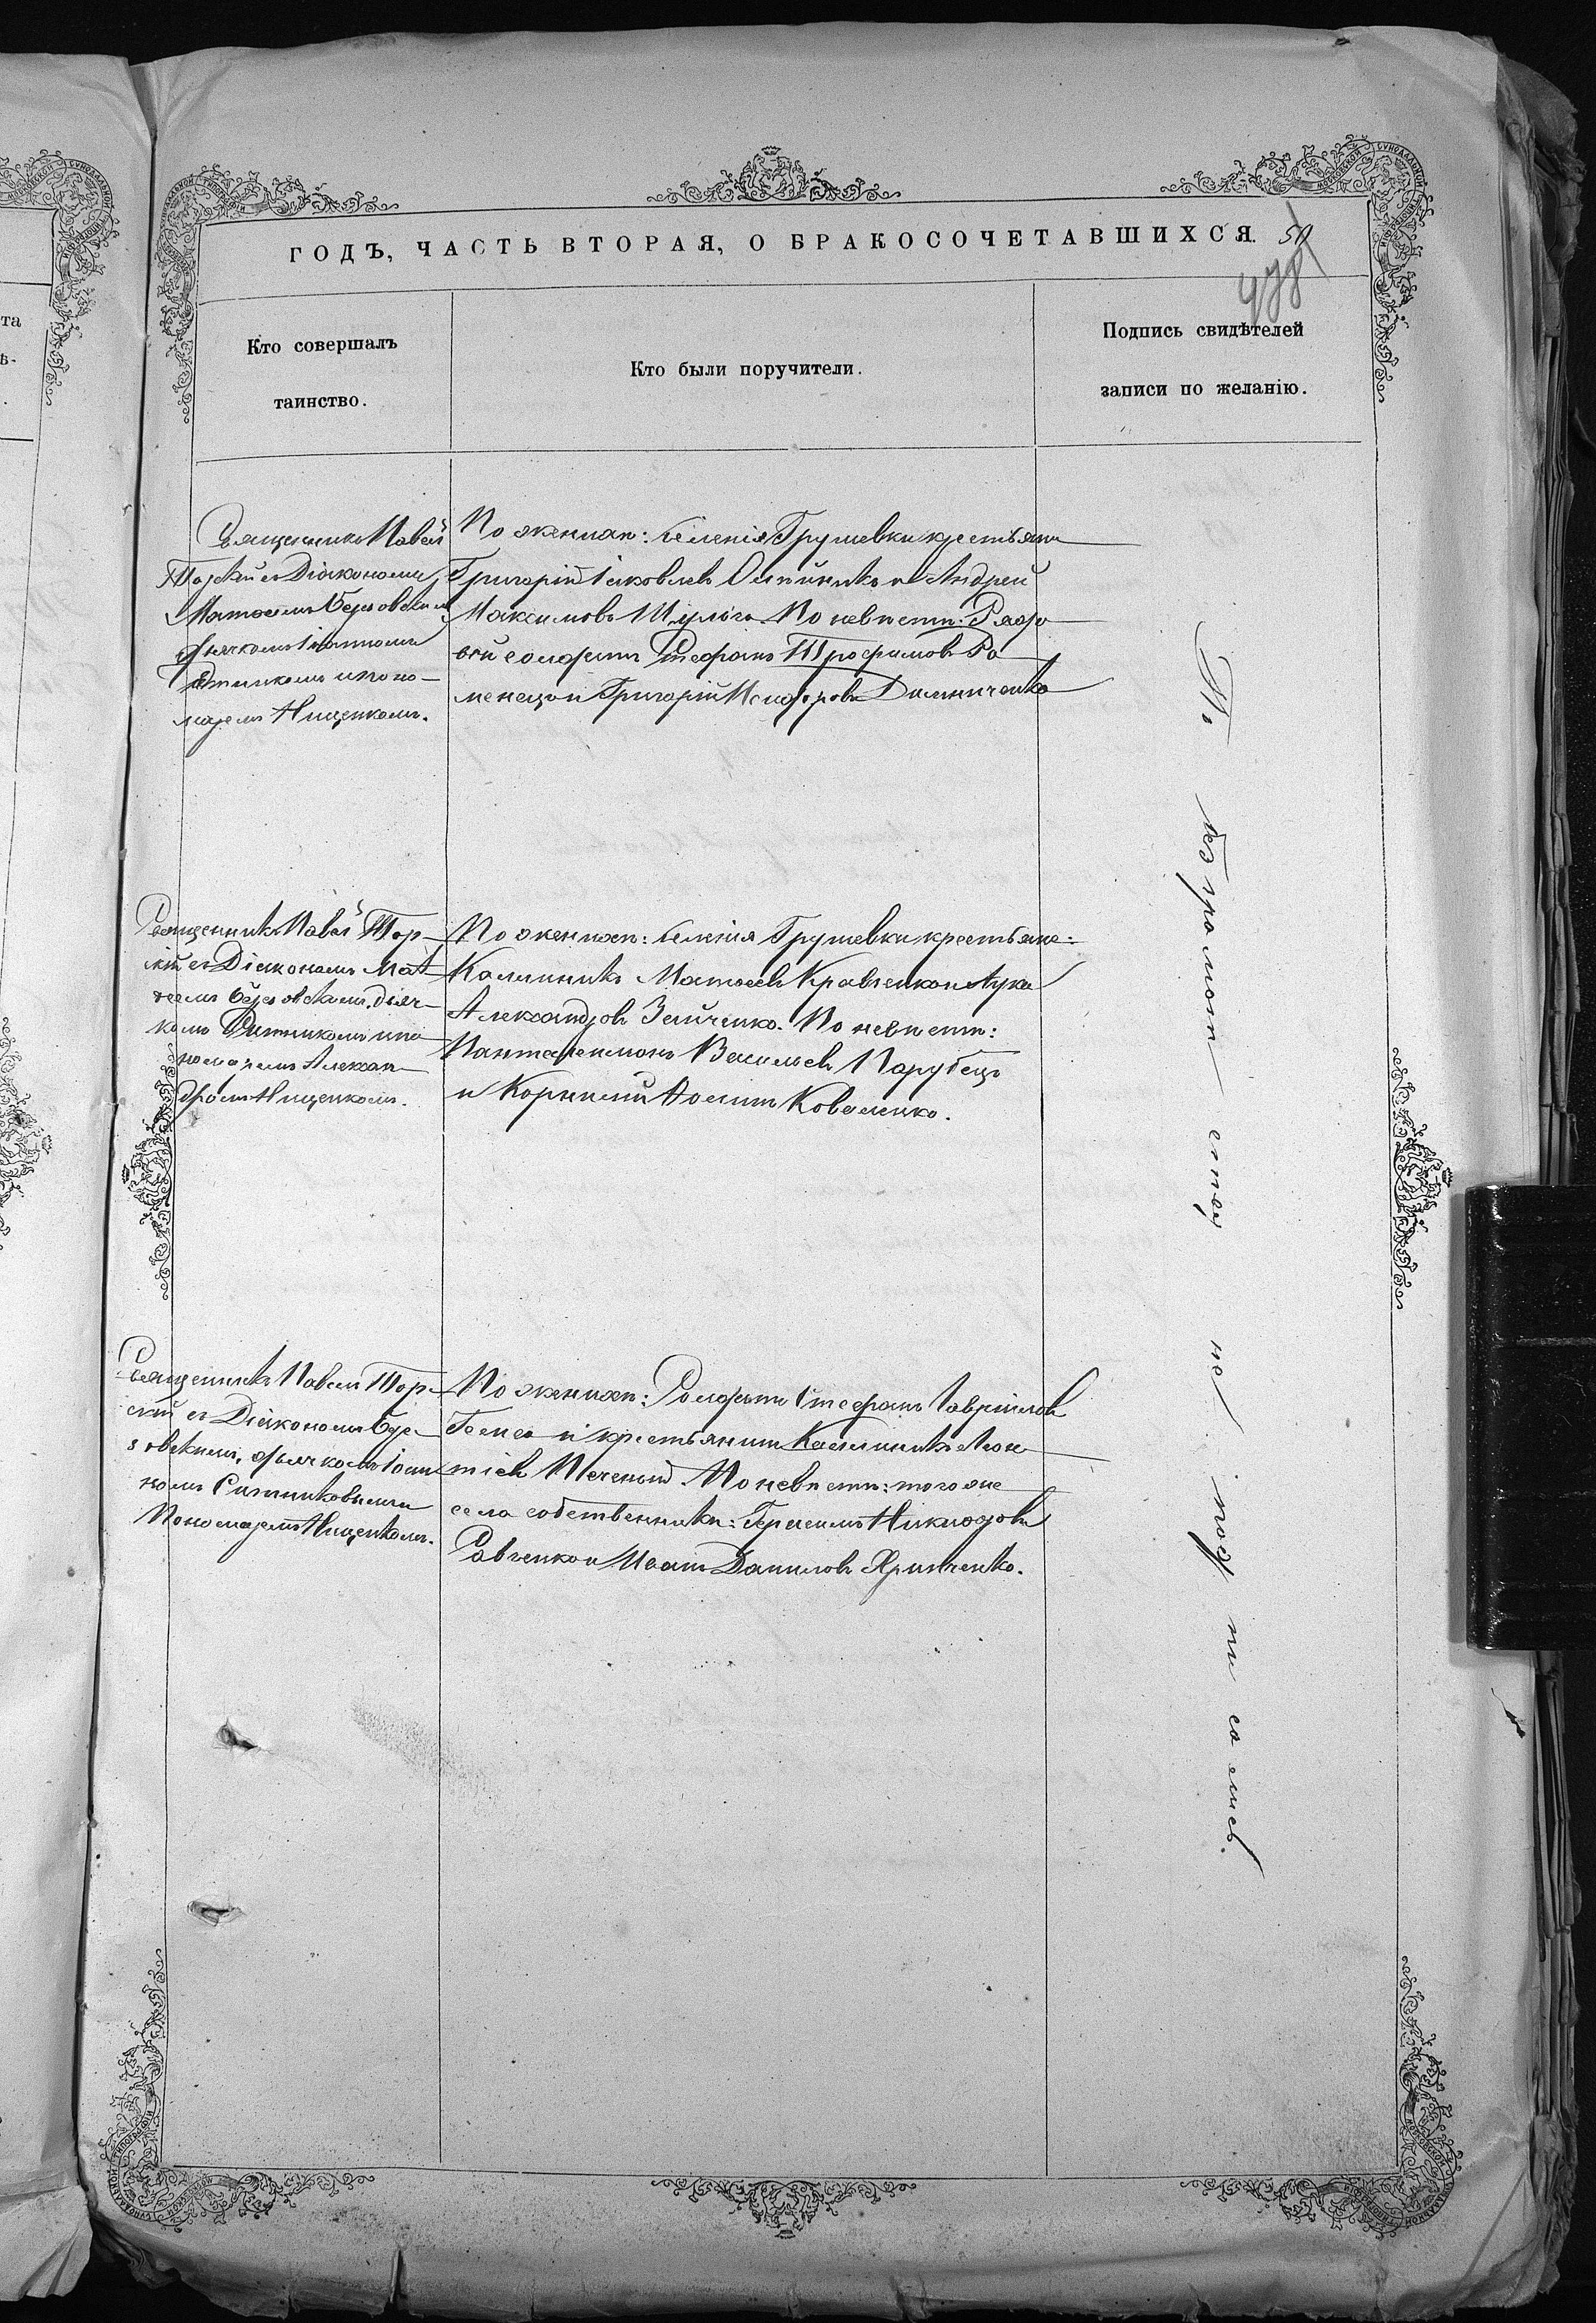 та
ѣ-
ГОДЪ, ЧАСТЬ ВТОРАЯ, О БРАКОСОЧЕТАВШИХСЯ.
Кто совершалъ
таинство.
Кто были поручители.
Подпись свидѣтелей
записи по желанію.
Священникъ Павелъ
Торскій съ Діакономъ
Матѳеемъ Березовскимъ
дьячкомъ Іоанномъ
и поно-
маремъ Нищенкомъ.
По женихѣ: селенія Грушевки крестьяне
Григорій Іаковлевъ Олѣйникъ и Андрей
Максимовъ Шульга. По невѣстѣ: Рядо
вой солдатъ Стефанъ Трофимовъ Ро
менецъ и Григорій
Священникъ Павелъ Тор-
скій съ Діакономъ Мат-
ѳеемъ Березовскимъ, дьяч-
комъ Ситникомъ и по
номаремъ Алексан-
дромъ Нищенкомъ.
По женихѣ: селенія Грушевки крестьяне:
Каллиникъ Матѳеевъ Кравченко и Лука
Александровъ Зайченко. По невѣстѣ:
Пантелеимонъ Васильевъ Парубецъ
и Корнилій Коваленко.
Священникъ Павелъ Тор-
скій съ Діакономъ Бере-
зовскимъ, дьячкомъ Іоан
номъ Ситниковымъ и
Пономаремъ Нищенкомъ.
По женихѣ: Солдатъ Стефанъ Гавріиловъ
и крестьянинъ Каллиникъ Леон
тіевъ Печеный. По невѣстѣ: того же
села собственники: Герасимъ
Савченко и Иванъ Даниловъ Хринченко.
По безграмотности не подписались.